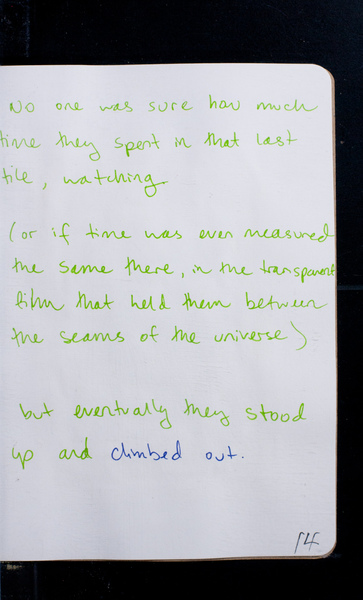 No one was sure how much
time they spent in that last
tile, watching
(or if time was even measured
the same there, in the transparent
film that held them between
the seams of the universe)
but eventually they stood
up and climbed out.
14